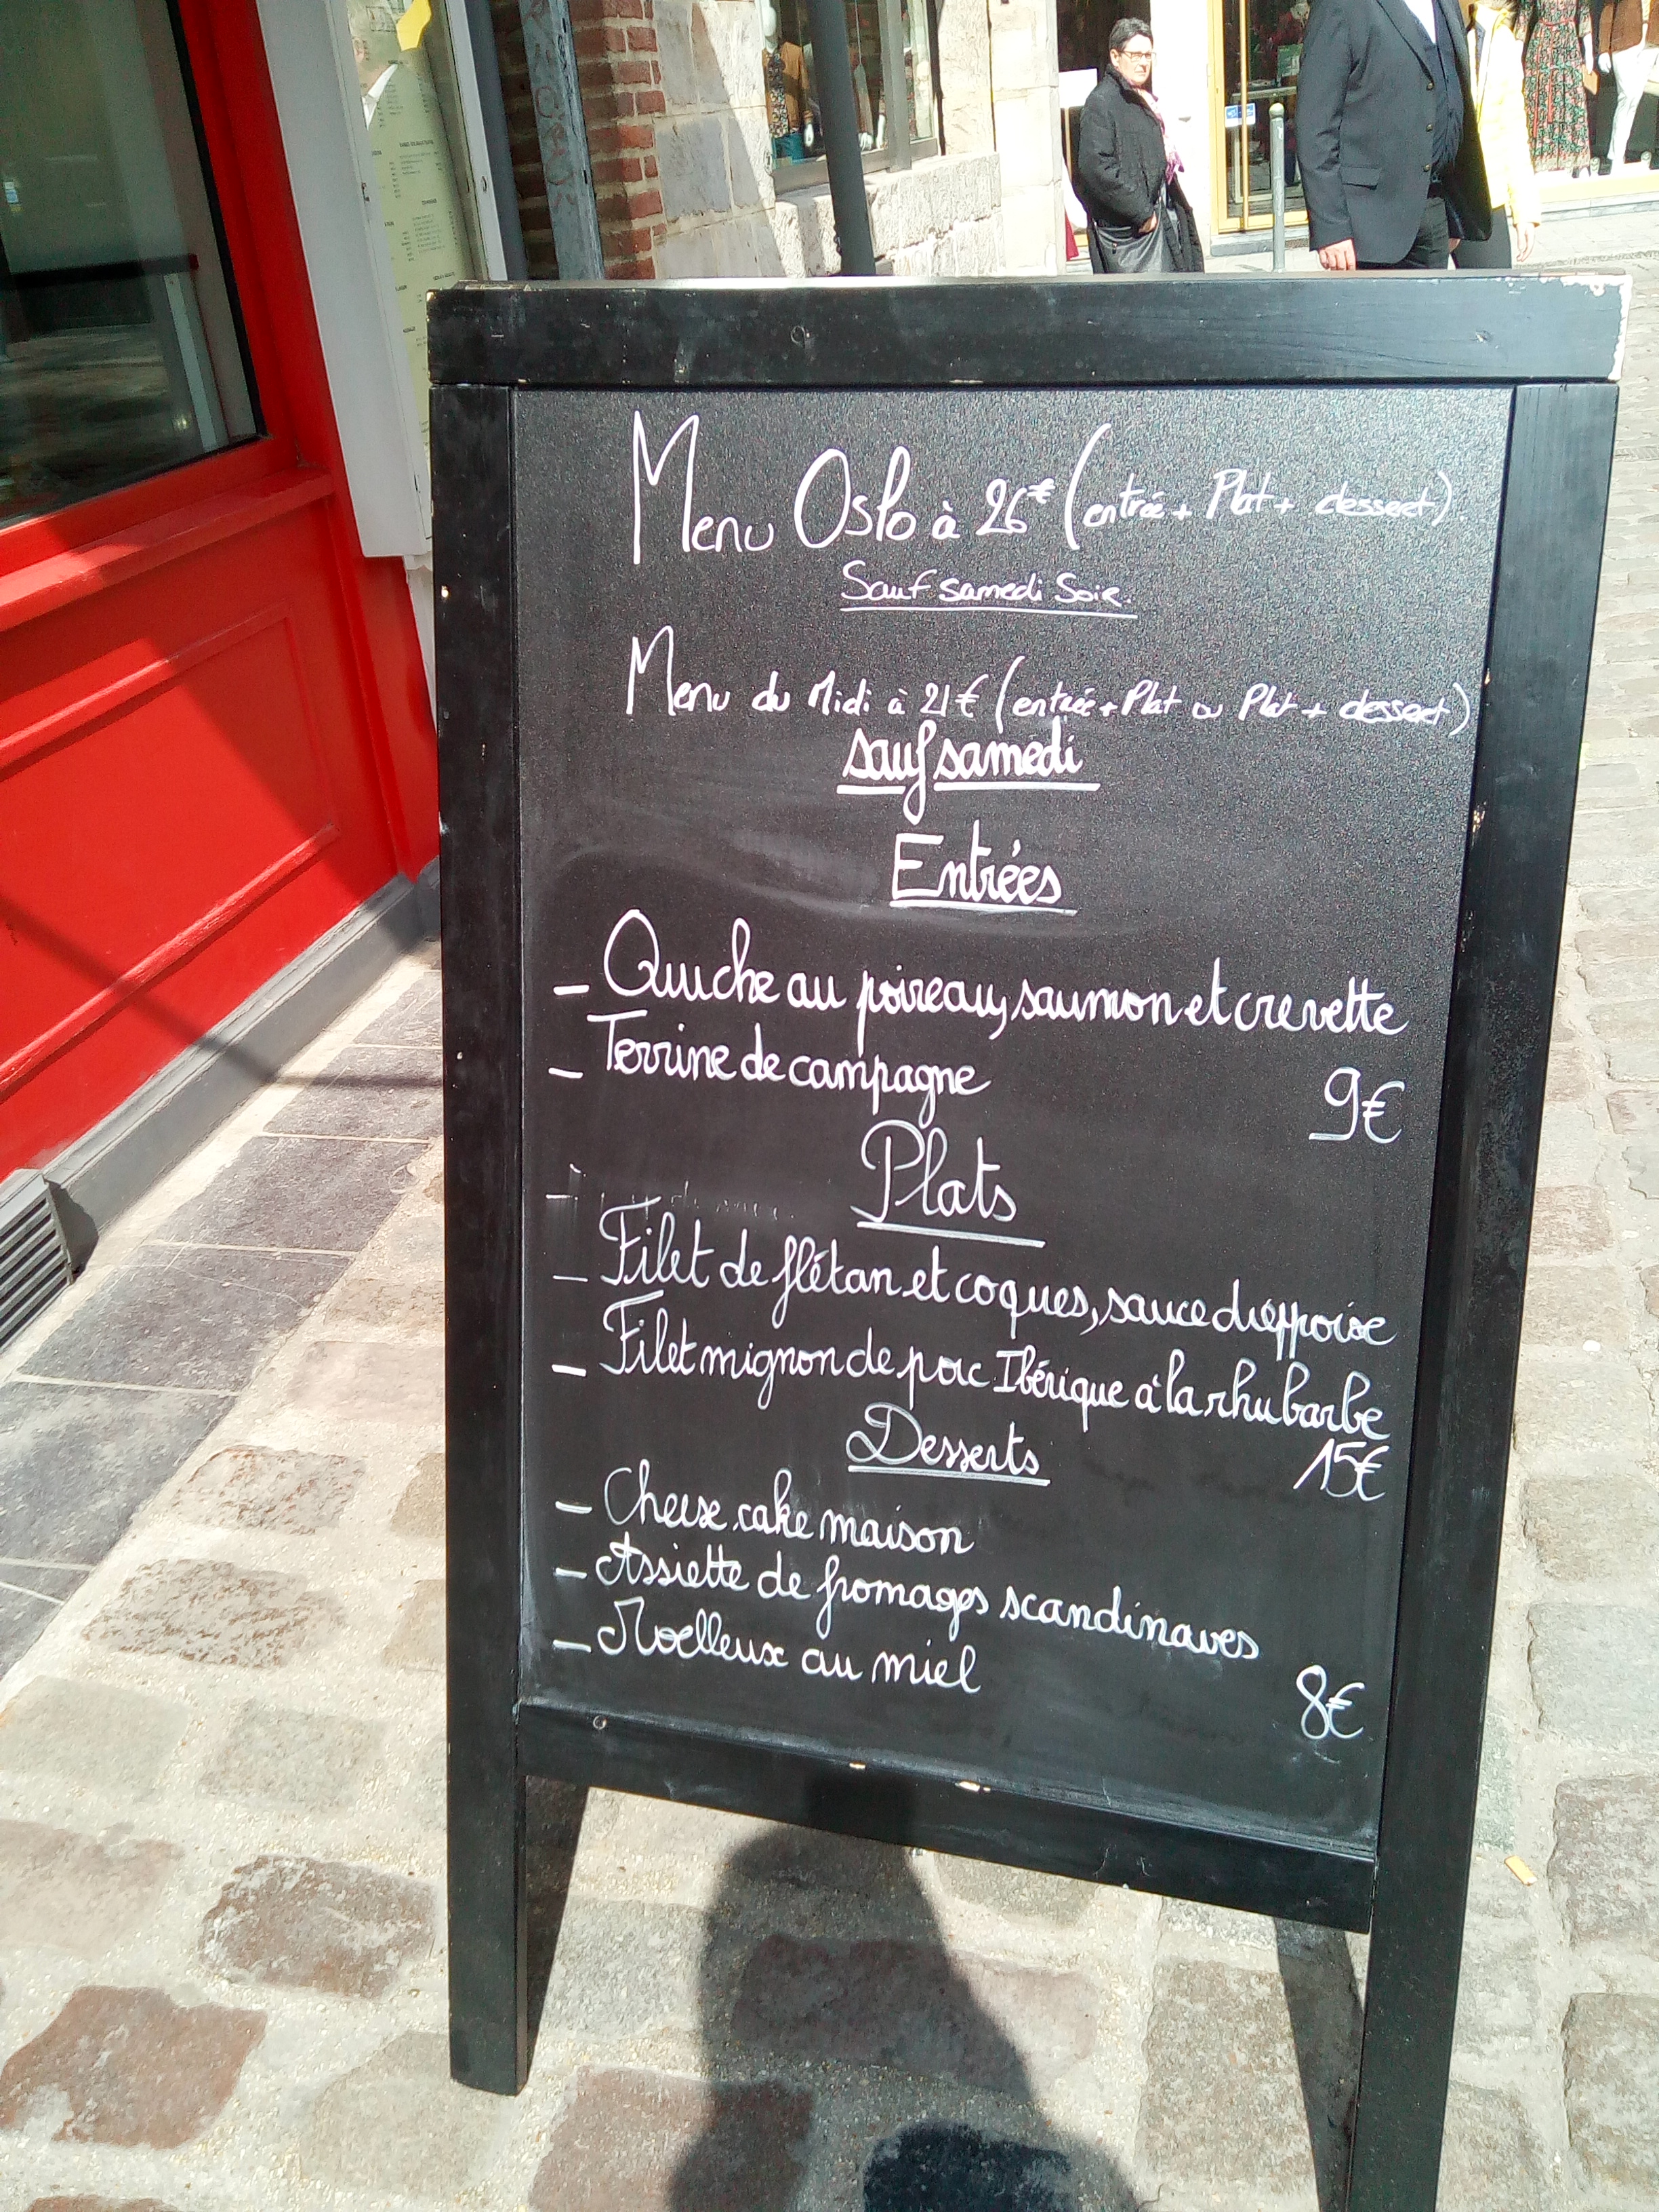 Menu Oslo à 26€ (entrée + Plat + dessert)
Sauf samedi Soir.
Menu du Midi à 21€ (entrée + Plat ou Plat + dessert)
sauf samedi
Entrées
- Quiche au poireau, saumon et crevette
- Terrine de campagne
9€
Plats
- Filet de flétan et coques, sauce dieppoise
- Filet mignon de porc Ibérique à la rhubarbe
15€
Desserts
- Cheese cake maison
- Assiette de fromages scandinaves
- Moelleux au miel
8€